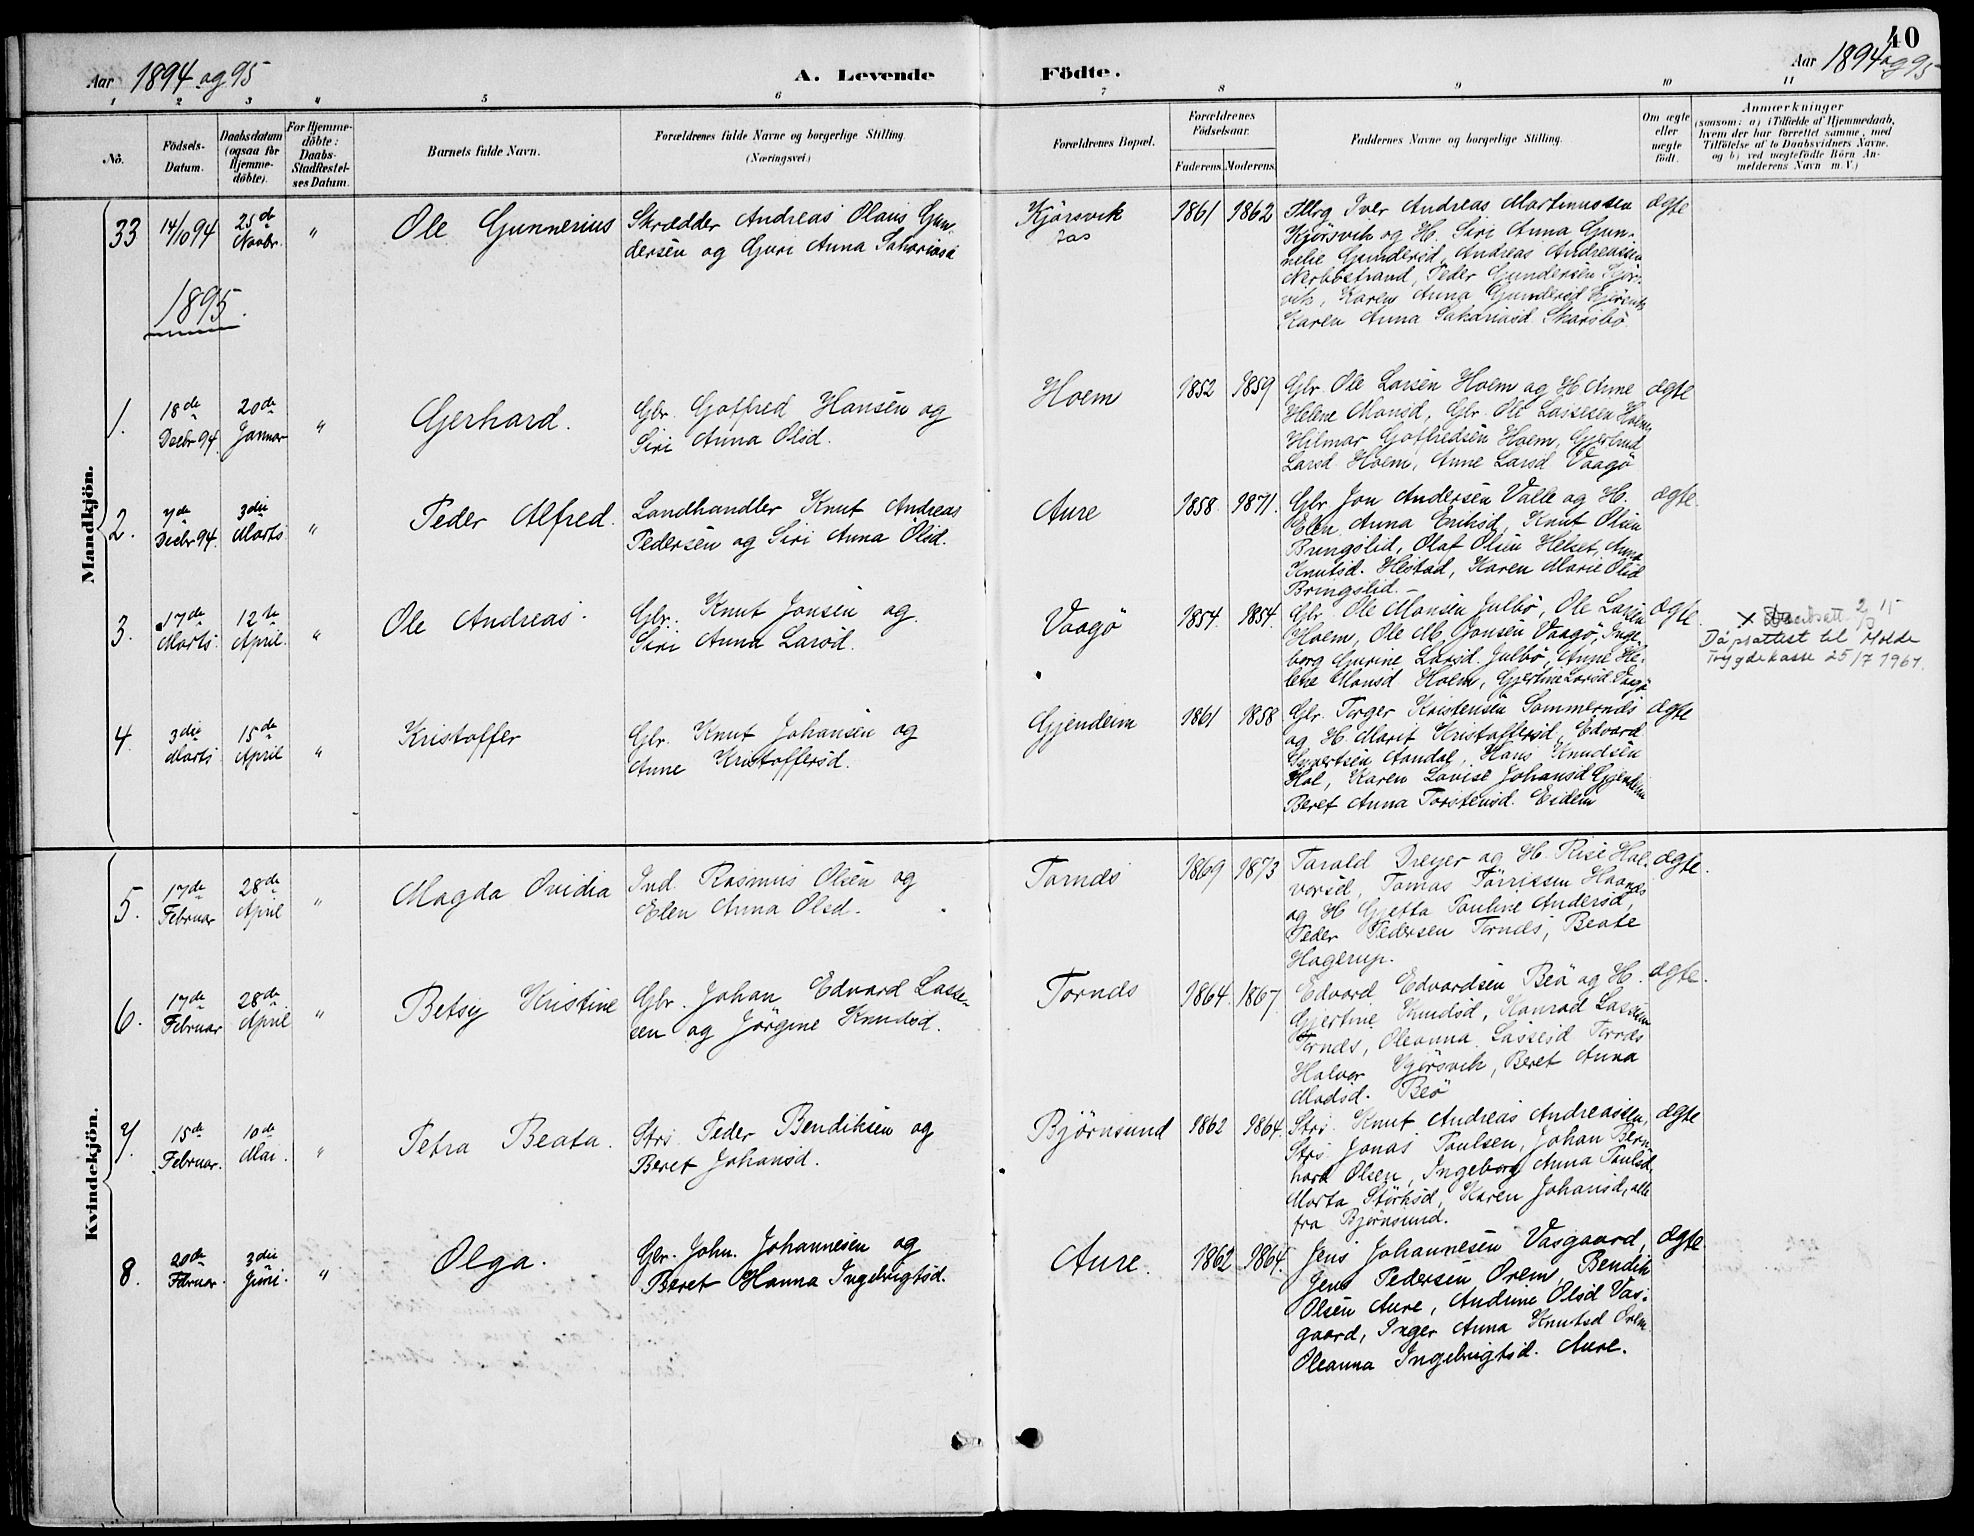 40
Aar 1894 og 95
A. Levende
Födte.
Aar 1894 og 95
1 2 3 4 5 6 7 8 9 10 11
No.
Födsels-
Datum.
Daabsdatum
(ogsaa for
Hjemme-
döbte).
For Hjemme-
döbte:
Daabs-
Stadfæstel-
ses Datum.
Barnets fulde Navn.
Forældrenes fulde Navne og borgerlige Stilling
(Næringsvei)
Forældrenes Bopæl.
Forældrenes
Födselsaar.
Faderens. Moderens.
Faddernes Navne og borgerlige Stilling.
Om ægte
eller
uægte
födt.
Anmærkninger
(saasom: a) i Tilfælde af Hjemmedaab,
hvem der har forrettet samme, med
Tilföielse af to Daabsvidners Navne,
og b) ved uægtefödte Börn An-
melderens Navn m. V.)
Mandkjön.
33
14/10 94
25de
Novbr.
"
Ole Gunnerius
Skrædder Andreas Olaus Gun-
dersen og Guri Anna Sakariasd
Kjörsvik
1861
1862
Iver Andreas Martinussen
Kjörsvik og H. Siri Anna Gun-
nelie Gundersd, Andreas Andreassen
Nerböstrand, Peder Gundersen Kjörs-
vik, Karen Anna Gundersd Kjörsvik
Karen Anna Sakariasd. Skarsbö.
ægte
1895.
1.
18de
Decbr 94.
20de
Januar
"
Gerhard.
Gbr. Goffred Hansen og
Siri Anna Olsd.
Hoem
1852
1859
Gbr. Ole Larsen Hoem og H. Anne
Helene Monsd, Gbr. Ole Lassesen Hoem,
Hilmar Goffredsen Hoem, Gjertrud
Larsd. Hoem, Anne Larsd Vaagö
ægte
2.
7de
Decbr 94.
3die
Marts
"
Peder Alfred.
Landhandler Knut Andreas
Pedersen og Siri Anna Olsd.
Aure
1858.
1871.
Gbr. Jon Andersen Valle og H.
Elen Anna Eriksd, Knut Olsen
Bringslid, Olaf Olsen Helset, Anna
Knutsd. Hestad, Karen Marie Olsd
Bringslid.
ægte.
3.
17de
Marts.
12te
April.
"
Ole Andreas.
Gbr. Knut Jonsen og
Siri Anna Larsd.
Vaagö
1854.
1854.
Gbr. Ole Monsen Julbö, Ole Larsen
Hoem, Ole M. Jonsen Vaagö, Inge-
borg Gurine Larsd. Julbö, Anne He-
lene Monsd Hoem, Gjertine Larsd. Vaagö
ægte.
2/3 15
Dåpsattest til Molde
Trygdekasse 25/7 1961.
4
3die
Marts
15de
April
"
Kristoffer
Gbr. Knut Johansen og
Anne Kristoffersd.
Gjendeim
1861
1858
Gbr. Torger Kristensen Sommernæs
og H. Marit Kristoffersd, Edvard
Syvertsen Aandal, Hans Knudsen
Hol, Karen Lovise Johansd Gjendeim
Beret Anna Torstensd. Eidem
ægte
Kvindekjön.
5.
17de
Februar
28de
April
"
Magda Ovidia
Ind. Rasmus Olsen og
Elen Anna Olsd.
Tornæs
1869
1873
Torald Dreyer og H. Rise Hal-
vorsd, Tomas Törrissen Haanæs
og H. Gjetta Pauline Andersd,
Peder Pedersen Tornæs, Beate
Hagerup.
ægte.
6.
17de
Februar
28de
April
"
Betsy Kristine
Gbr. Johan Edvard Lasse-
sen og Jörgine Knudsd.
Tornæs
1864.
1867.
Edvard Edvardsen Beö og H.
Gjertine Knudsd, Konrad Lassesen
Tornæs, Oleanna Lassesd Tornæs
Halvor Gjörsvik, Beret Anna
Madsd. Beö
ægte.
7.
15de
Februar.
10de
Mai.
"
Petra Beata.
Stri. Peder Bendiksen og
Beret Johansd.
Björnsund
1862
1864.
Stri. Knut Andreas Andreassen,
Stri Jonas Paulsen, Johan Bern-
hard Olsen, Ingeborg Anna Paulsd.
Marta Störksd, Karen Johansd, alle
fra Björnsund.
ægte
8.
20de
Februar.
3die
Juni.
"
Olga.
Gbr. John Johannesen og
Beret Hanna Ingebrigtsd.
Aure.
1862
1864.
Jens Johannesen Vasgaard,
Jens Pedersen Orem, Bendik
Olsen Aure, Andrine Olsd Vas-
gaard, Inger Anna Knutsd Orem
Oleanna Ingebrigtsd. Aure.
ægte